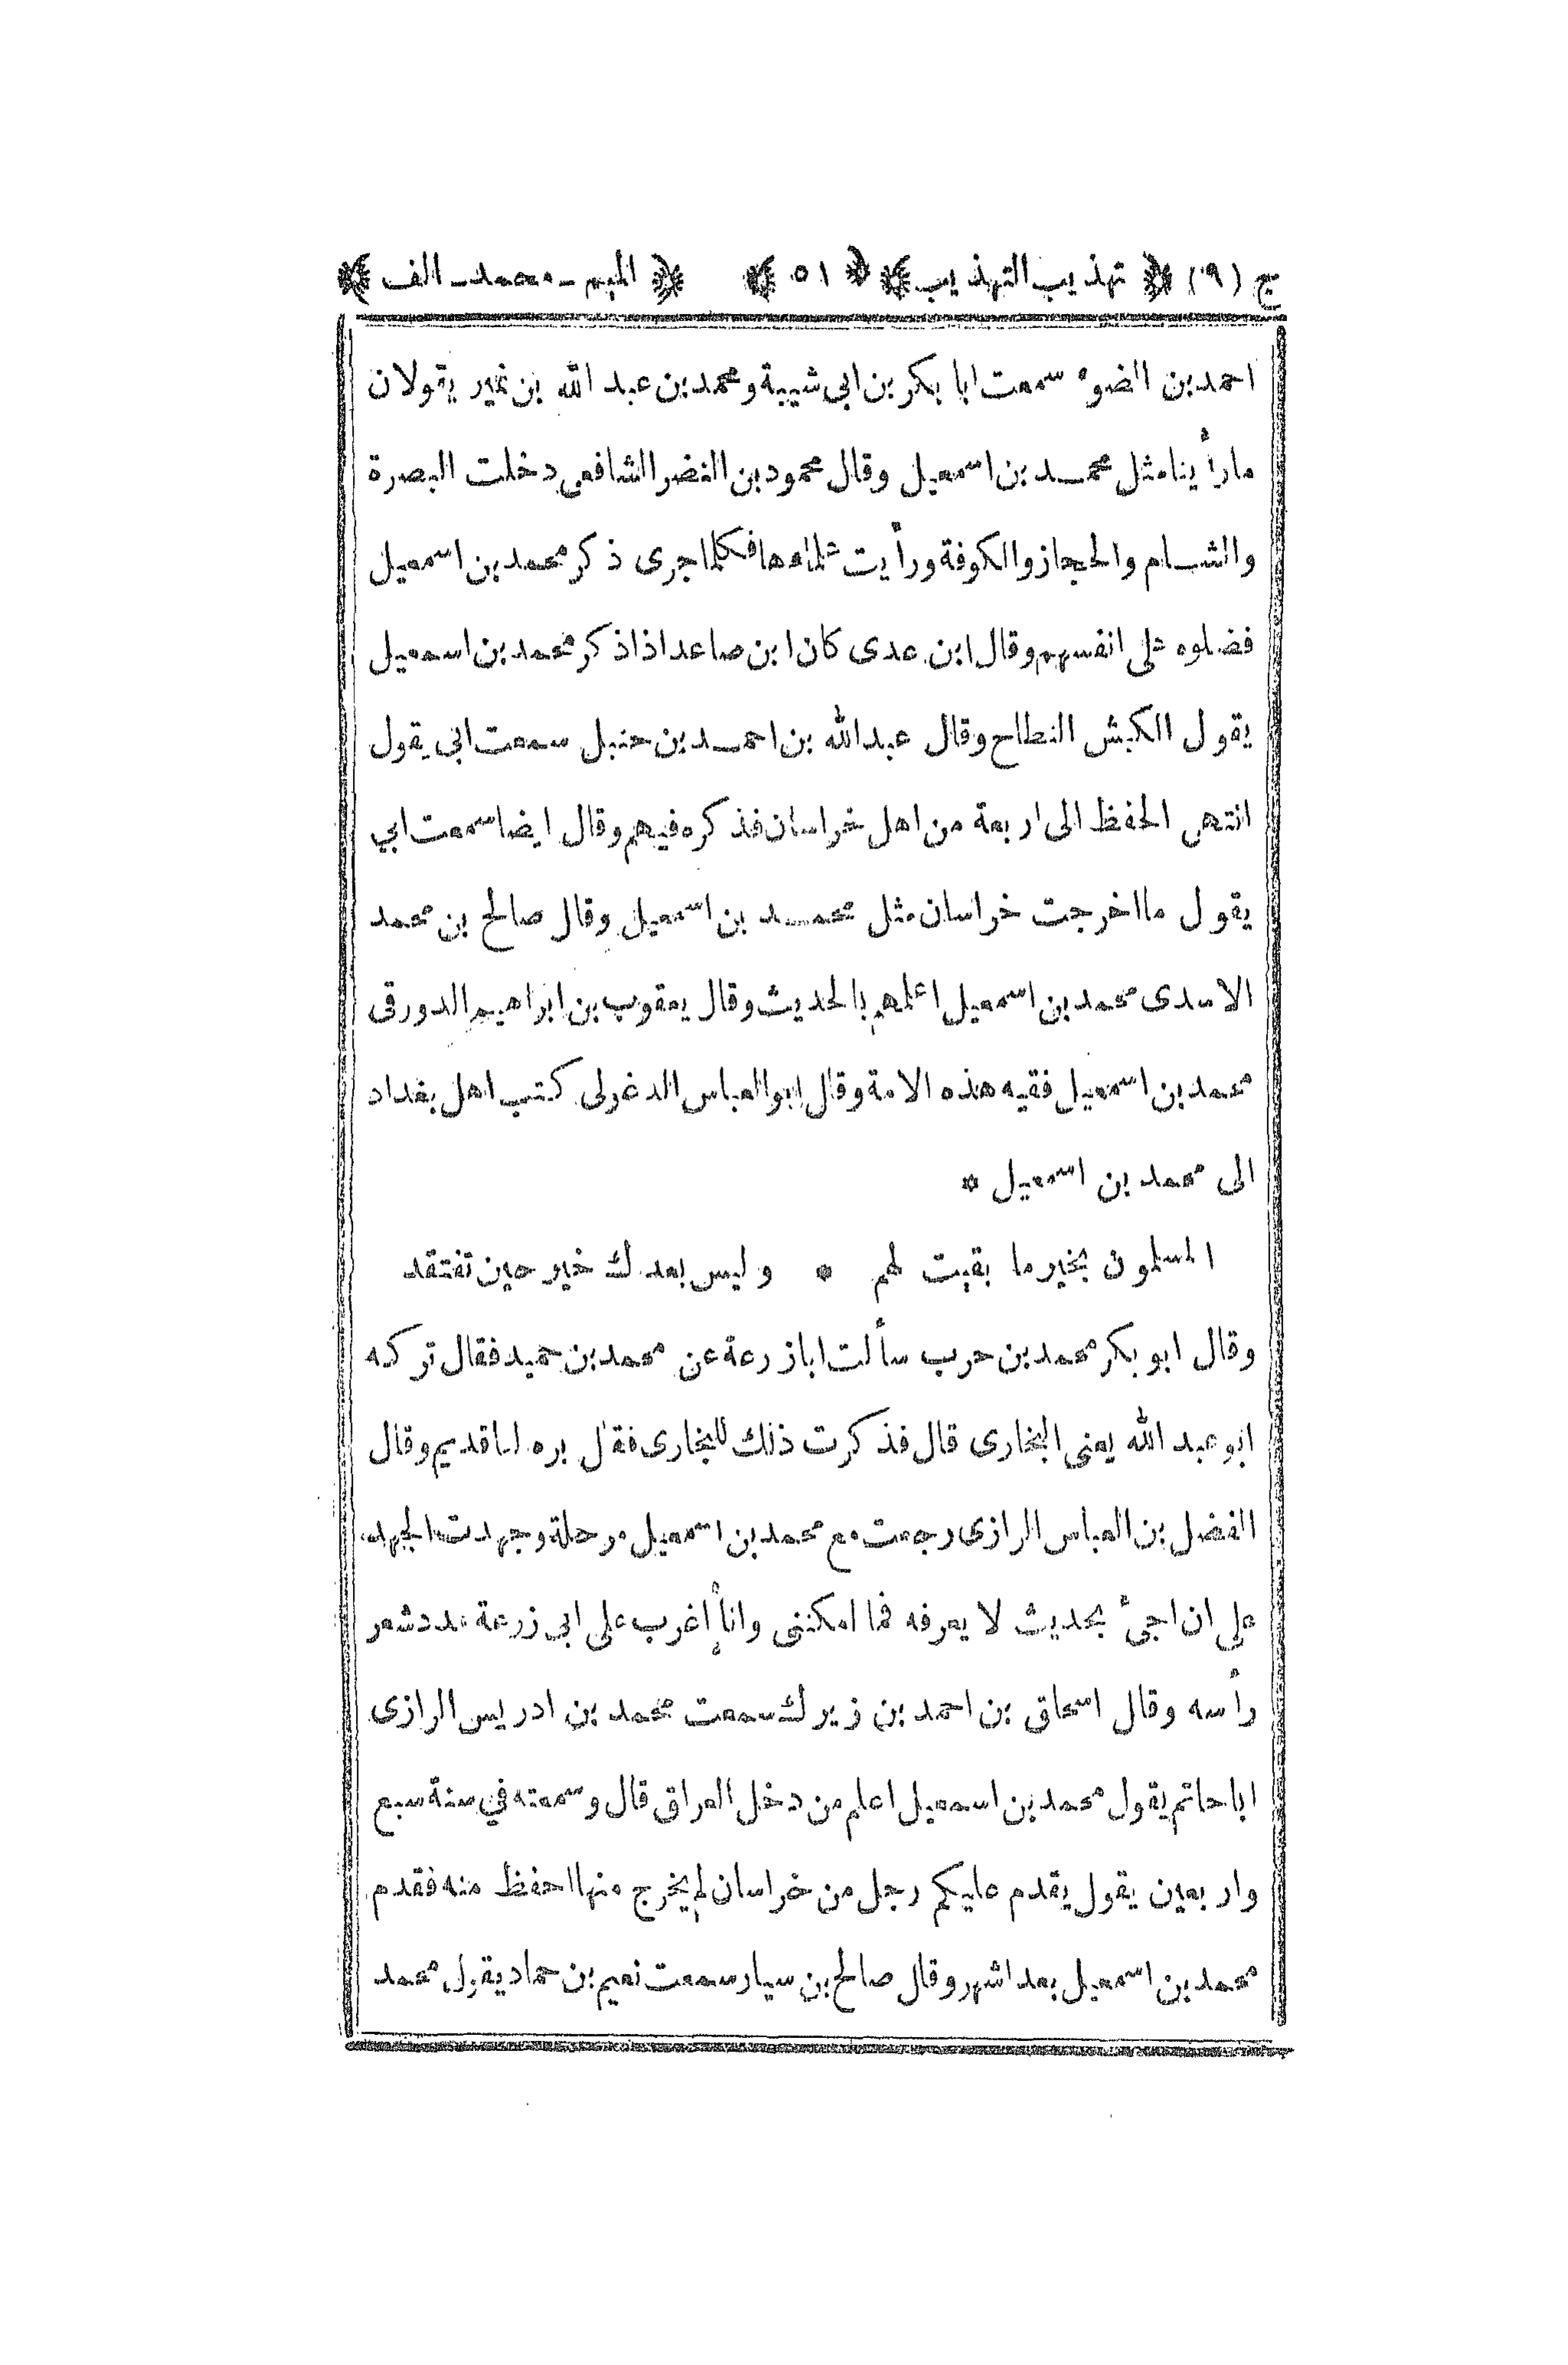 ج (٩) ﴿ تهذيب التهذيب ﴾ ﴿ ٥١ ﴾ ﴿ الميم - محمد - الف ﴾
احمد بن الضوء سمعت ابا بكر بن ابى شيبة ومحمد بن عبد الله بن نمير يقولان
مارأينا مثل محمد بن اسمعيل وقال محمود بن النضر الشافعى دخلت البصرة
والشام والحجاز والكوفة ورأيت علماءها فكلما جرى ذكر محمد بن اسمعيل
فضلوه على انفسهم وقال ابن عدى كان ابن صاعد اذا ذكر محمد بن اسمعيل
يقول الكبش النطاح وقال عبد الله بن احمد بن حنبل سمعت ابى يقول
انتهى الحفظ الى اربعة من اهل خراسان فذكره فيهم وقال ايضا سمعت ابي
يقول ما اخرجت خراسان مثل محمد بن اسمعيل وقال صالح بن محمد
الاسدى محمد بن اسمعيل اعلمهم بالحديث وقال يعقوب بن ابراهيم الدورقى
محمد بن اسمعيل فقيه هذه الامة وقال ابو العباس الدغولى كتب اهل بغداد
الى محمد بن اسمعيل *
المسلمون بخير ما بقيت لهم * وليس بعدك خير حين تفتقد
وقال ابو بكر محمد بن حرب سألت ابا زرعة عن محمد بن حميد فقال تركه
ابو عبد الله يعنى البخارى قال فذكرت ذلك للبخارى فقال بره لنا قديم وقال
الفضل بن العباس الرازى رجعت مع محمد بن اسمعيل مرحلة وجهدت الجهد
على ان اجئ بحديث لا يعرفه فما امكننى وانا أغرب على ابى زرعة عدد شعر
رأسه وقال اسحاق بن احمد بن زيرك سمعت محمد بن ادريس الرازى
اباحاتم يقول محمد بن اسمعيل اعلم من دخل العراق قال وسمعته في سنة سبع
واربعين يقول يقدم عليكم رجل من خراسان لم يخرج منها احفظ منه فقدم
محمد بن اسمعيل بعد اشهر وقال صالح بن سيار سمعت نعيم بن حماد يقول محمد